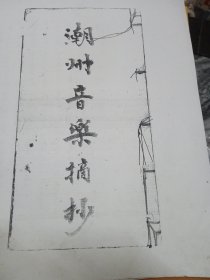 潮州音樂摘抄